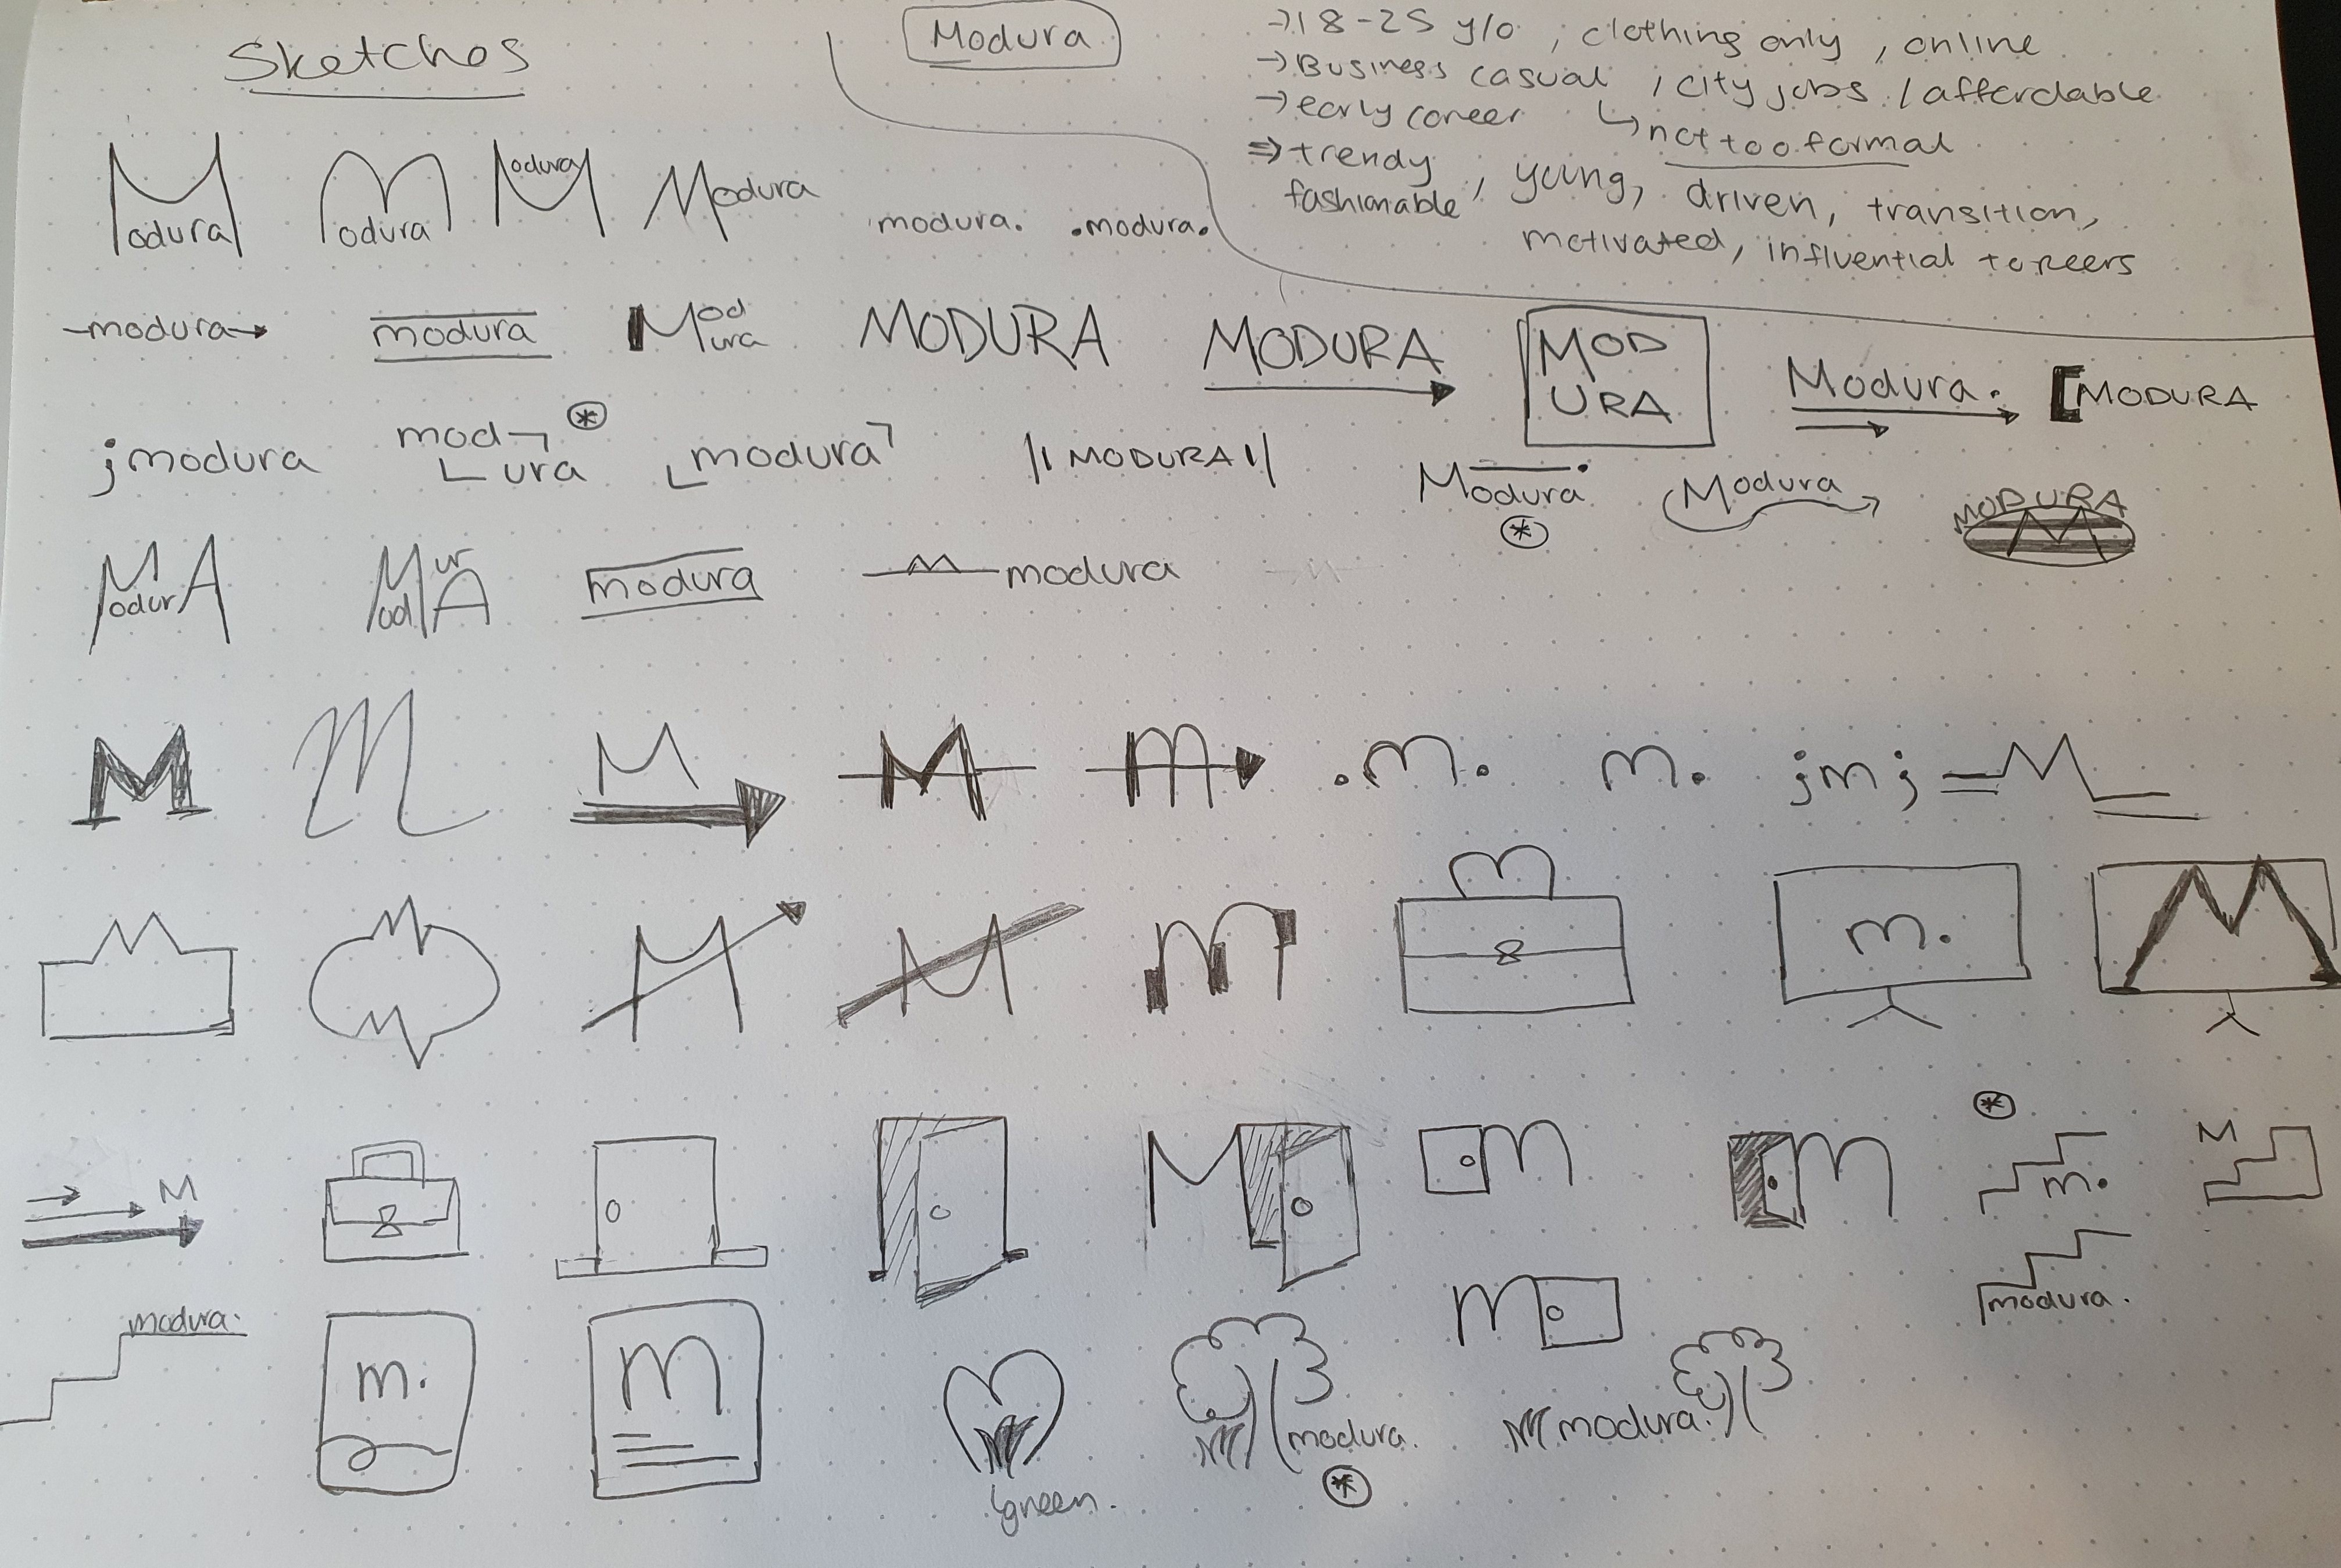 Sketches
Modura
→ 18-25 y/o , clothing only , online
→ Business casual , city jobs / affordable
→ early career ↳ not too formal
⇒ trendy , young, driven, transition,
fashionable
motivated, influential
Modura
Modura
Modura
Modura
modura.
.modura.
-modura→
modura
Modura
MODURA
MODURA
MOD
URA
Modura.
[MODURA
jmodura
mod
ura
modura
|| MODURA ||
Modura
Modura
MODURA
M
ModurA
ModurA
modura
M modura
M
M
M
M
m
.m.
m.
jmj
M
M
M
m
m
m.
M
M
M
m
m
m.
M
m
modura.
modura.
m.
m
green.
modura.
modura.